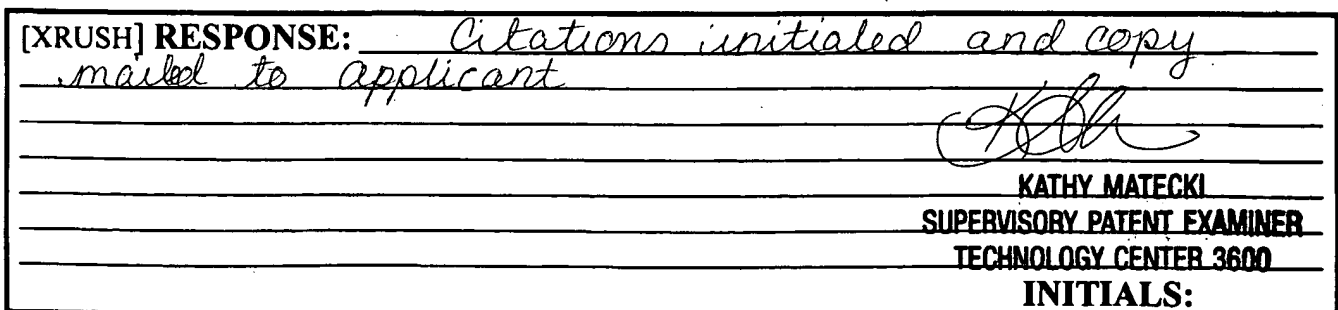 [XRUSH] RESPONSE: Citations initialed and copy
mailed to applicant
KATHY MATECKI
SUPERVISORY PATENT EXAMINER
TECHNOLOGY CENTER 3600
INITIALS: